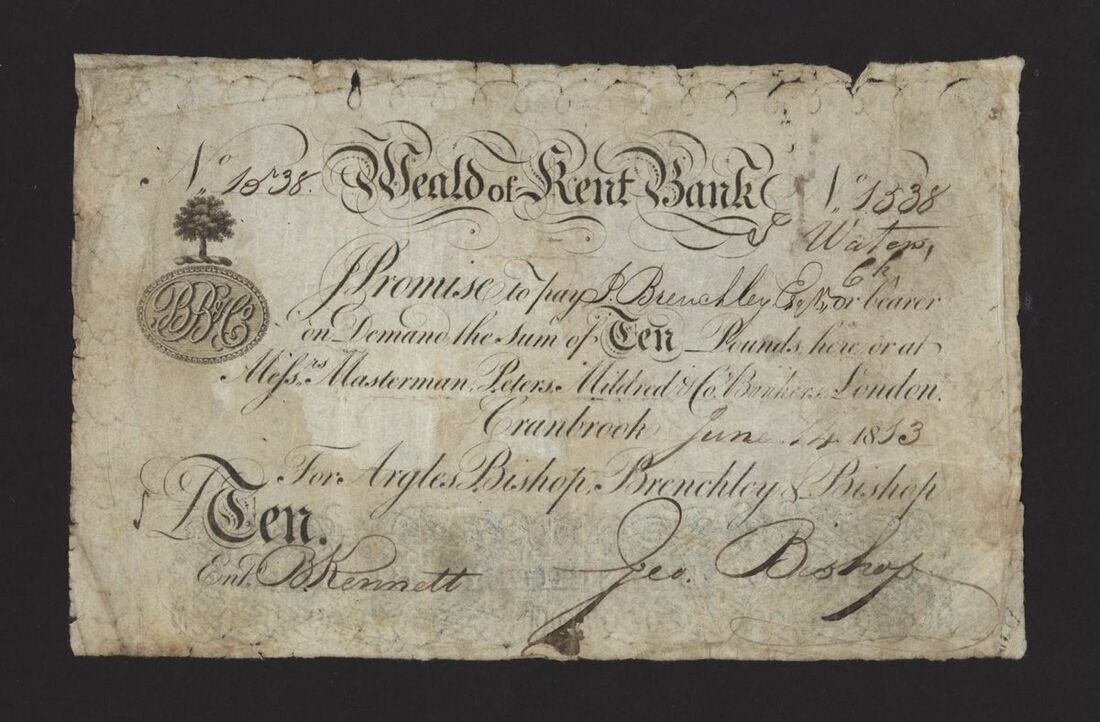 No. 1538. Weald of Kent Bank No. 1538
Waters,
I Promise to pay J. Brenchley Esqr., or bearer
on Demand the Sum of Ten Pounds, here, or at
Messrs. Masterman, Peters, Mildred & Co. Bankers, London.
Cranbrook June 14 1813
For Argles, Bishop, Brenchley & Bishop
£Ten.
Geo. Bishop
Entd. B Kennett